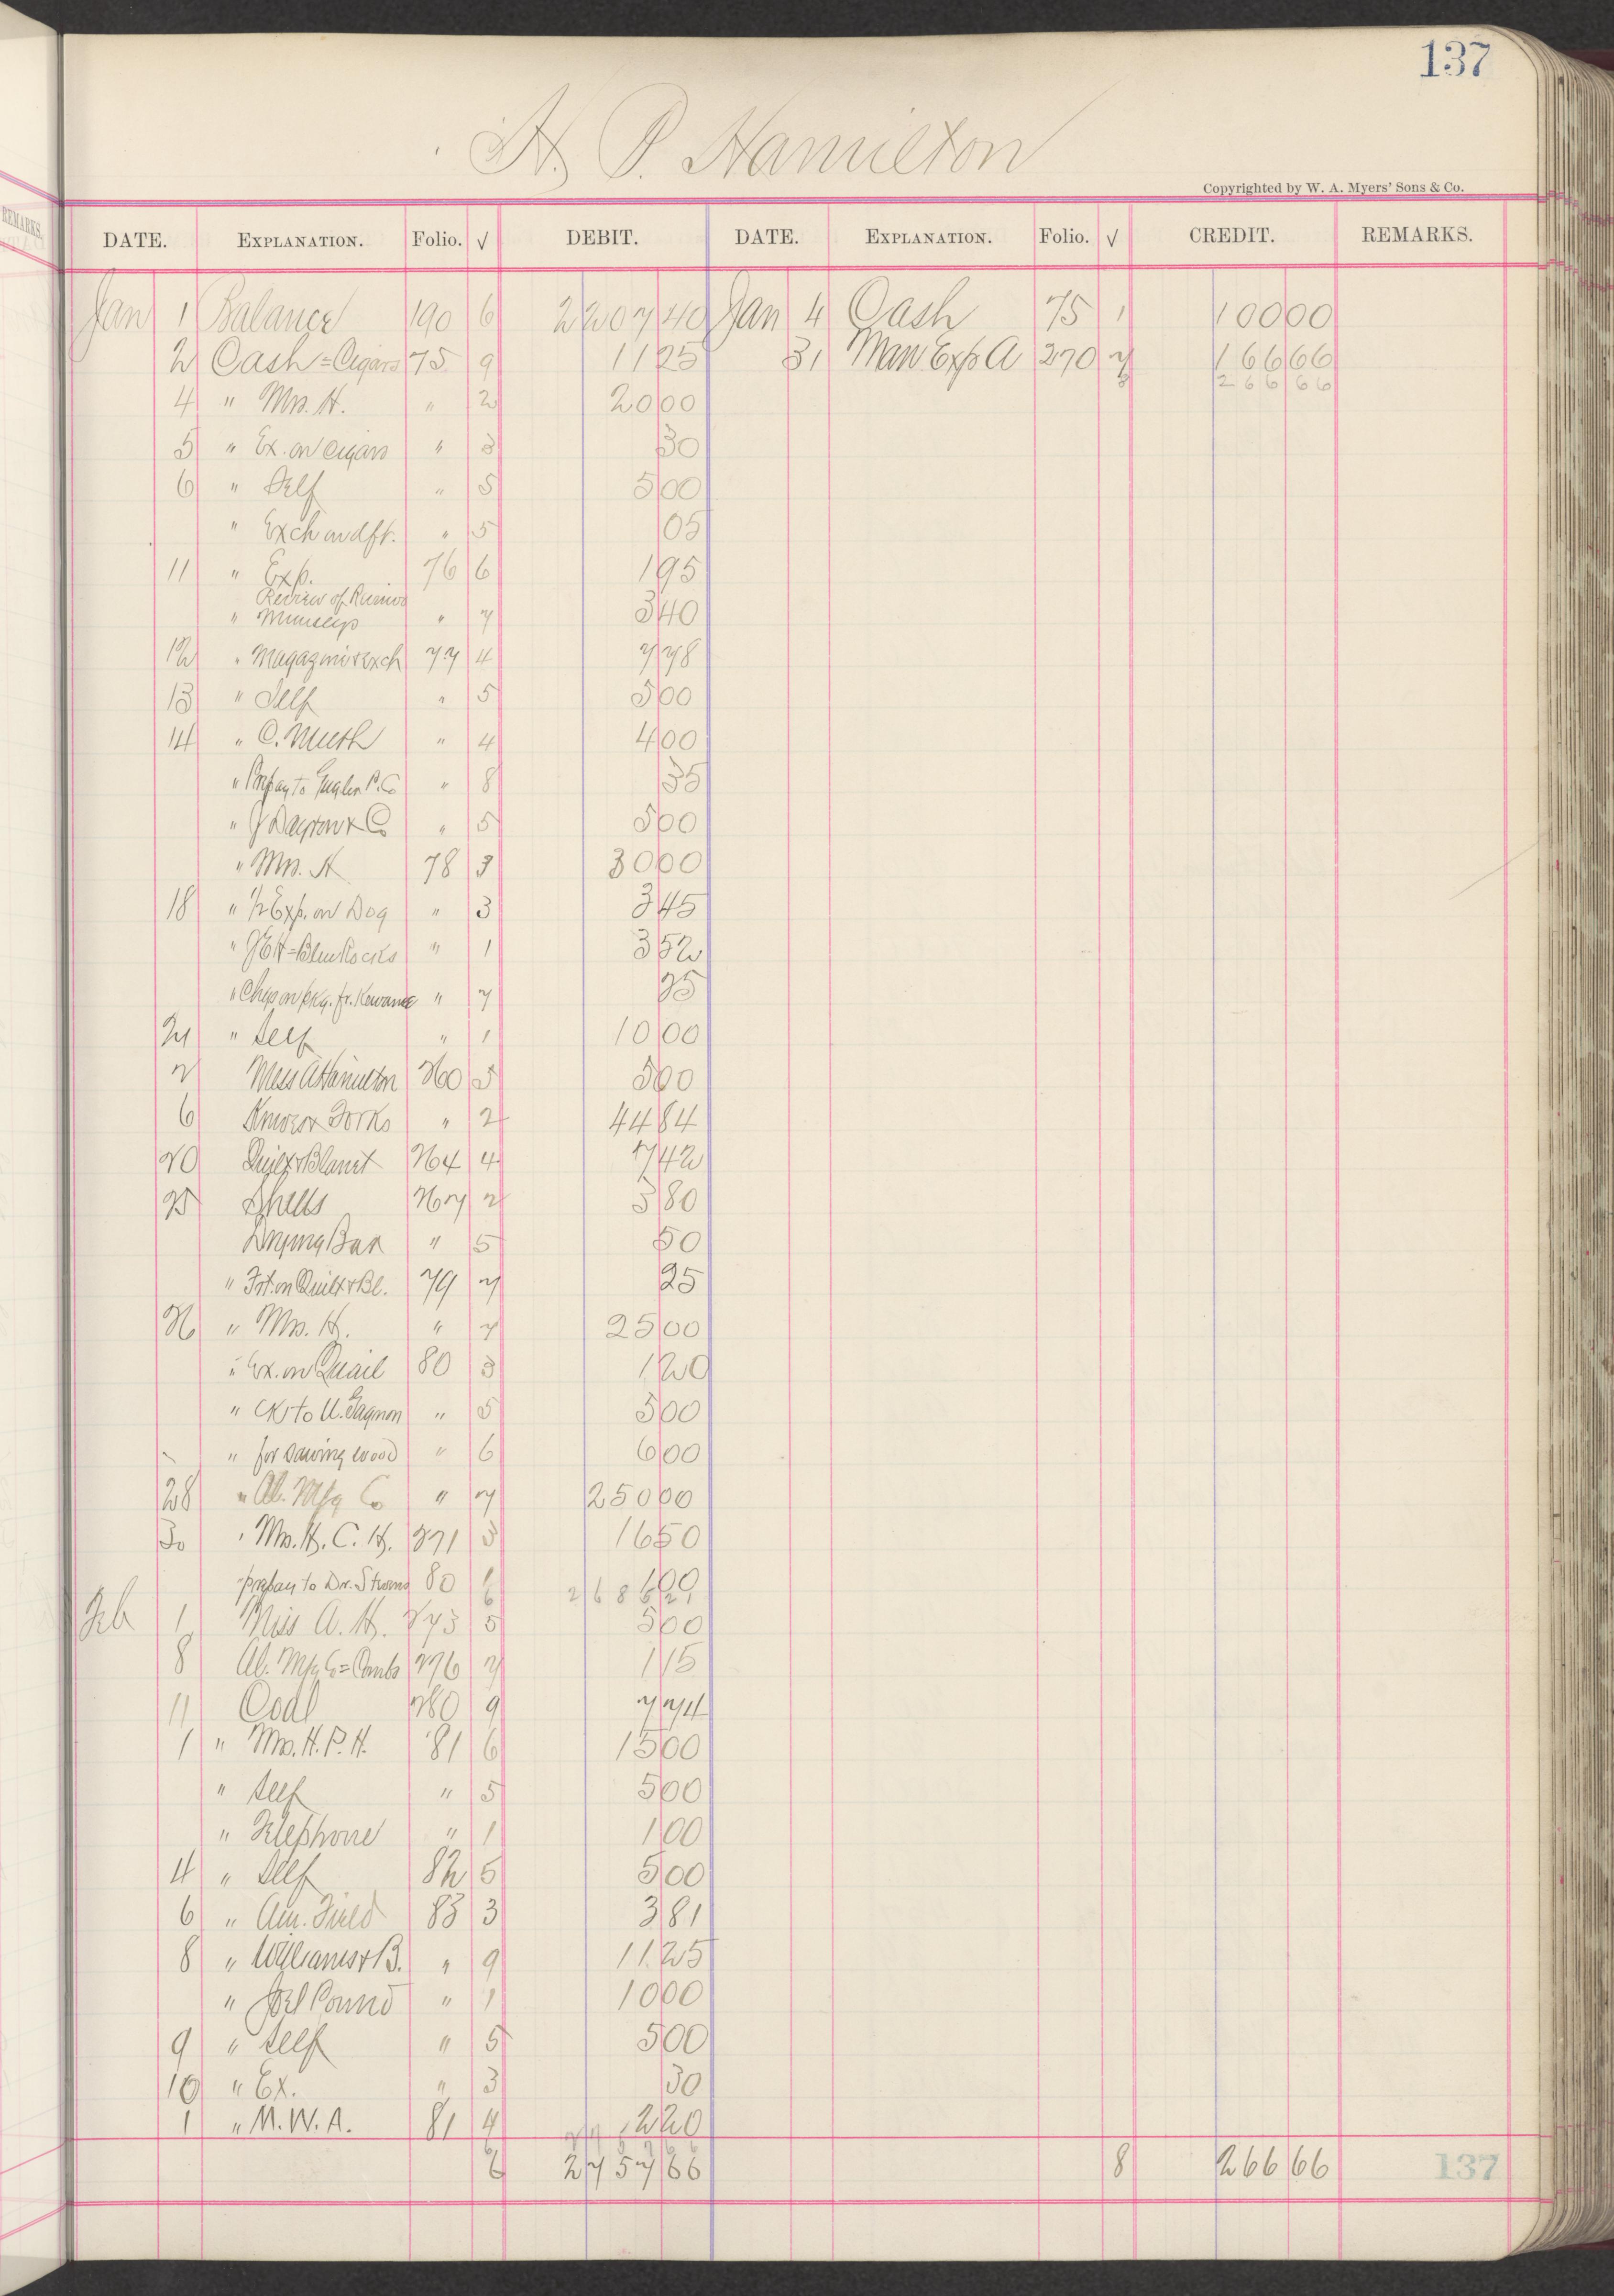 137
H. P. Hamilton
Copyrighted by W. A. Myers' Sons & Co.
DATE. EXPLANATION. Folio. √ DEBIT. DATE. EXPLANATION. Folio. √ CREDIT. REMARKS.
Jan 1 Balance 190 6 2207 40 Jan 4 Cash 75 1 100 00
2 Cash = Cigars 75 9 11 25 31 Man. Exp A 270 7 166 66
8 266 66
4 " Mrs. H. " 2 20 00
5 " Ex. on Cigars " 3 30
6 " Self " 5 5 00
" Exch on dft. " 5 05
11 " Exp. 76 6 1 95
Review of Reviews
" Munseys " 7 3 40
12 " Magazines exch 77 4 7 78
13 " Self " 5 5 00
14 " C. Muth " 4 4 00
" Prepay to P. Co " 8 35
" & Co " 5 5 00
" Mrs. H 78 3 30 00
18 " 1/2 Exp. on Dog " 3 3 45
" = Blue Rocks " 1 3 52
" Chgs on pkg. fr. Kewanee " 7 25
21 " Self " 1 10 00
2 Miss A Hamilton 260 5 5 00
6 Knives & Forks " 2 44 84
20 Quilt & Blankt 264 4 7 42
25 Shells 267 2 5 80
Drying Bar " 5 50
" Frt. on Quilt & Bl. 79 7 25
26 " Mrs. H. " 7 25 00
" Ex. on Quail 80 3 1 20
" Ck to U. Gagnon " 5 5 00
" for sawing wood " 6 6 00
28 " Al. Mfg Co " 7 250 00
30 " Mrs. H. C. H. 271 3 16 50
prepay to Dr. 80 1 1 00
6 2686 21
Feb 1 Miss A. H. 273 5 5 00
8 Al. Mfg Co = Combs 276 7 1 15
11 Coal 280 9 7 74
1 " Mrs. H. P. H. 81 6 15 00
" Self " 5 5 00
" Telephone " 1 1 00
4 " Self 82 5 5 00
6 " Am. Field 83 3 3 81
8 " Williams & B. " 9 11 25
" Joel Pound " 1 10 00
9 " Self " 5 5 00
10 " Ex. " 3 30
1 " M. W. A. 81 4 2 20
6 2757 66 8 266 66
137